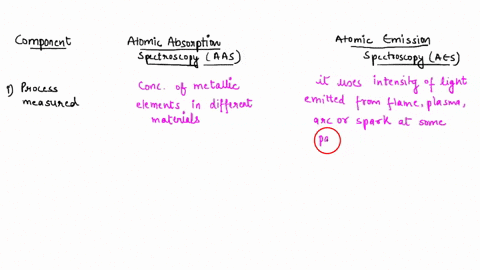 Component
Atomic Absorption
Spectroscopy (AAS)
Atomic Emission
Spectroscopy (AES)
1) Process
measured
Conc. of metallic
elements in different
materials
it uses intensity of light
emitted from flame, plasma,
arc or spark at some
pa